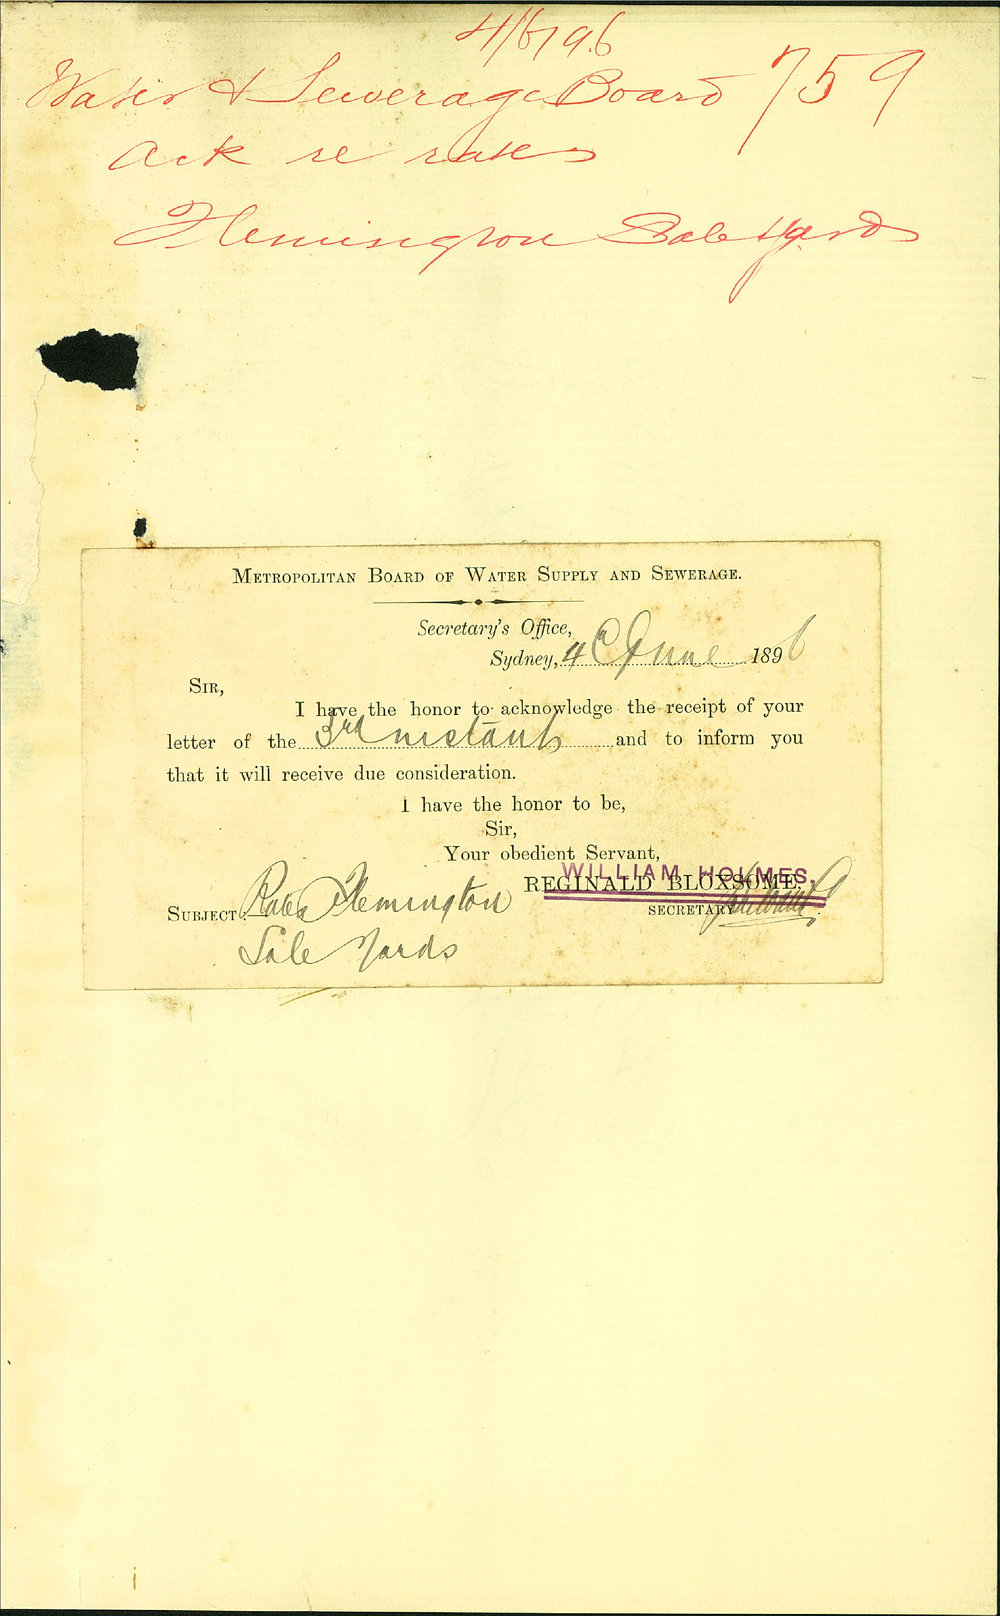 4/6/96
Water & Sewerage Board 759
Ack re rates
Flemington Sale Yards
METROPOLITAN BOARD OF WATER SUPPLY AND SEWERAGE.
Secretary's Office,
Sydney, 4 June 1896
SIR,
I have the honor to acknowledge the receipt of your
letter of the 3rd instant and to inform you
that it will receive due consideration.
I have the honor to be,
Sir,
Your obedient Servant,
WILLIAM HOLMES.
REGINALD BLOXSOME,
SECRETARY.
SUBJECT: Rates Flemington
Sale Yards